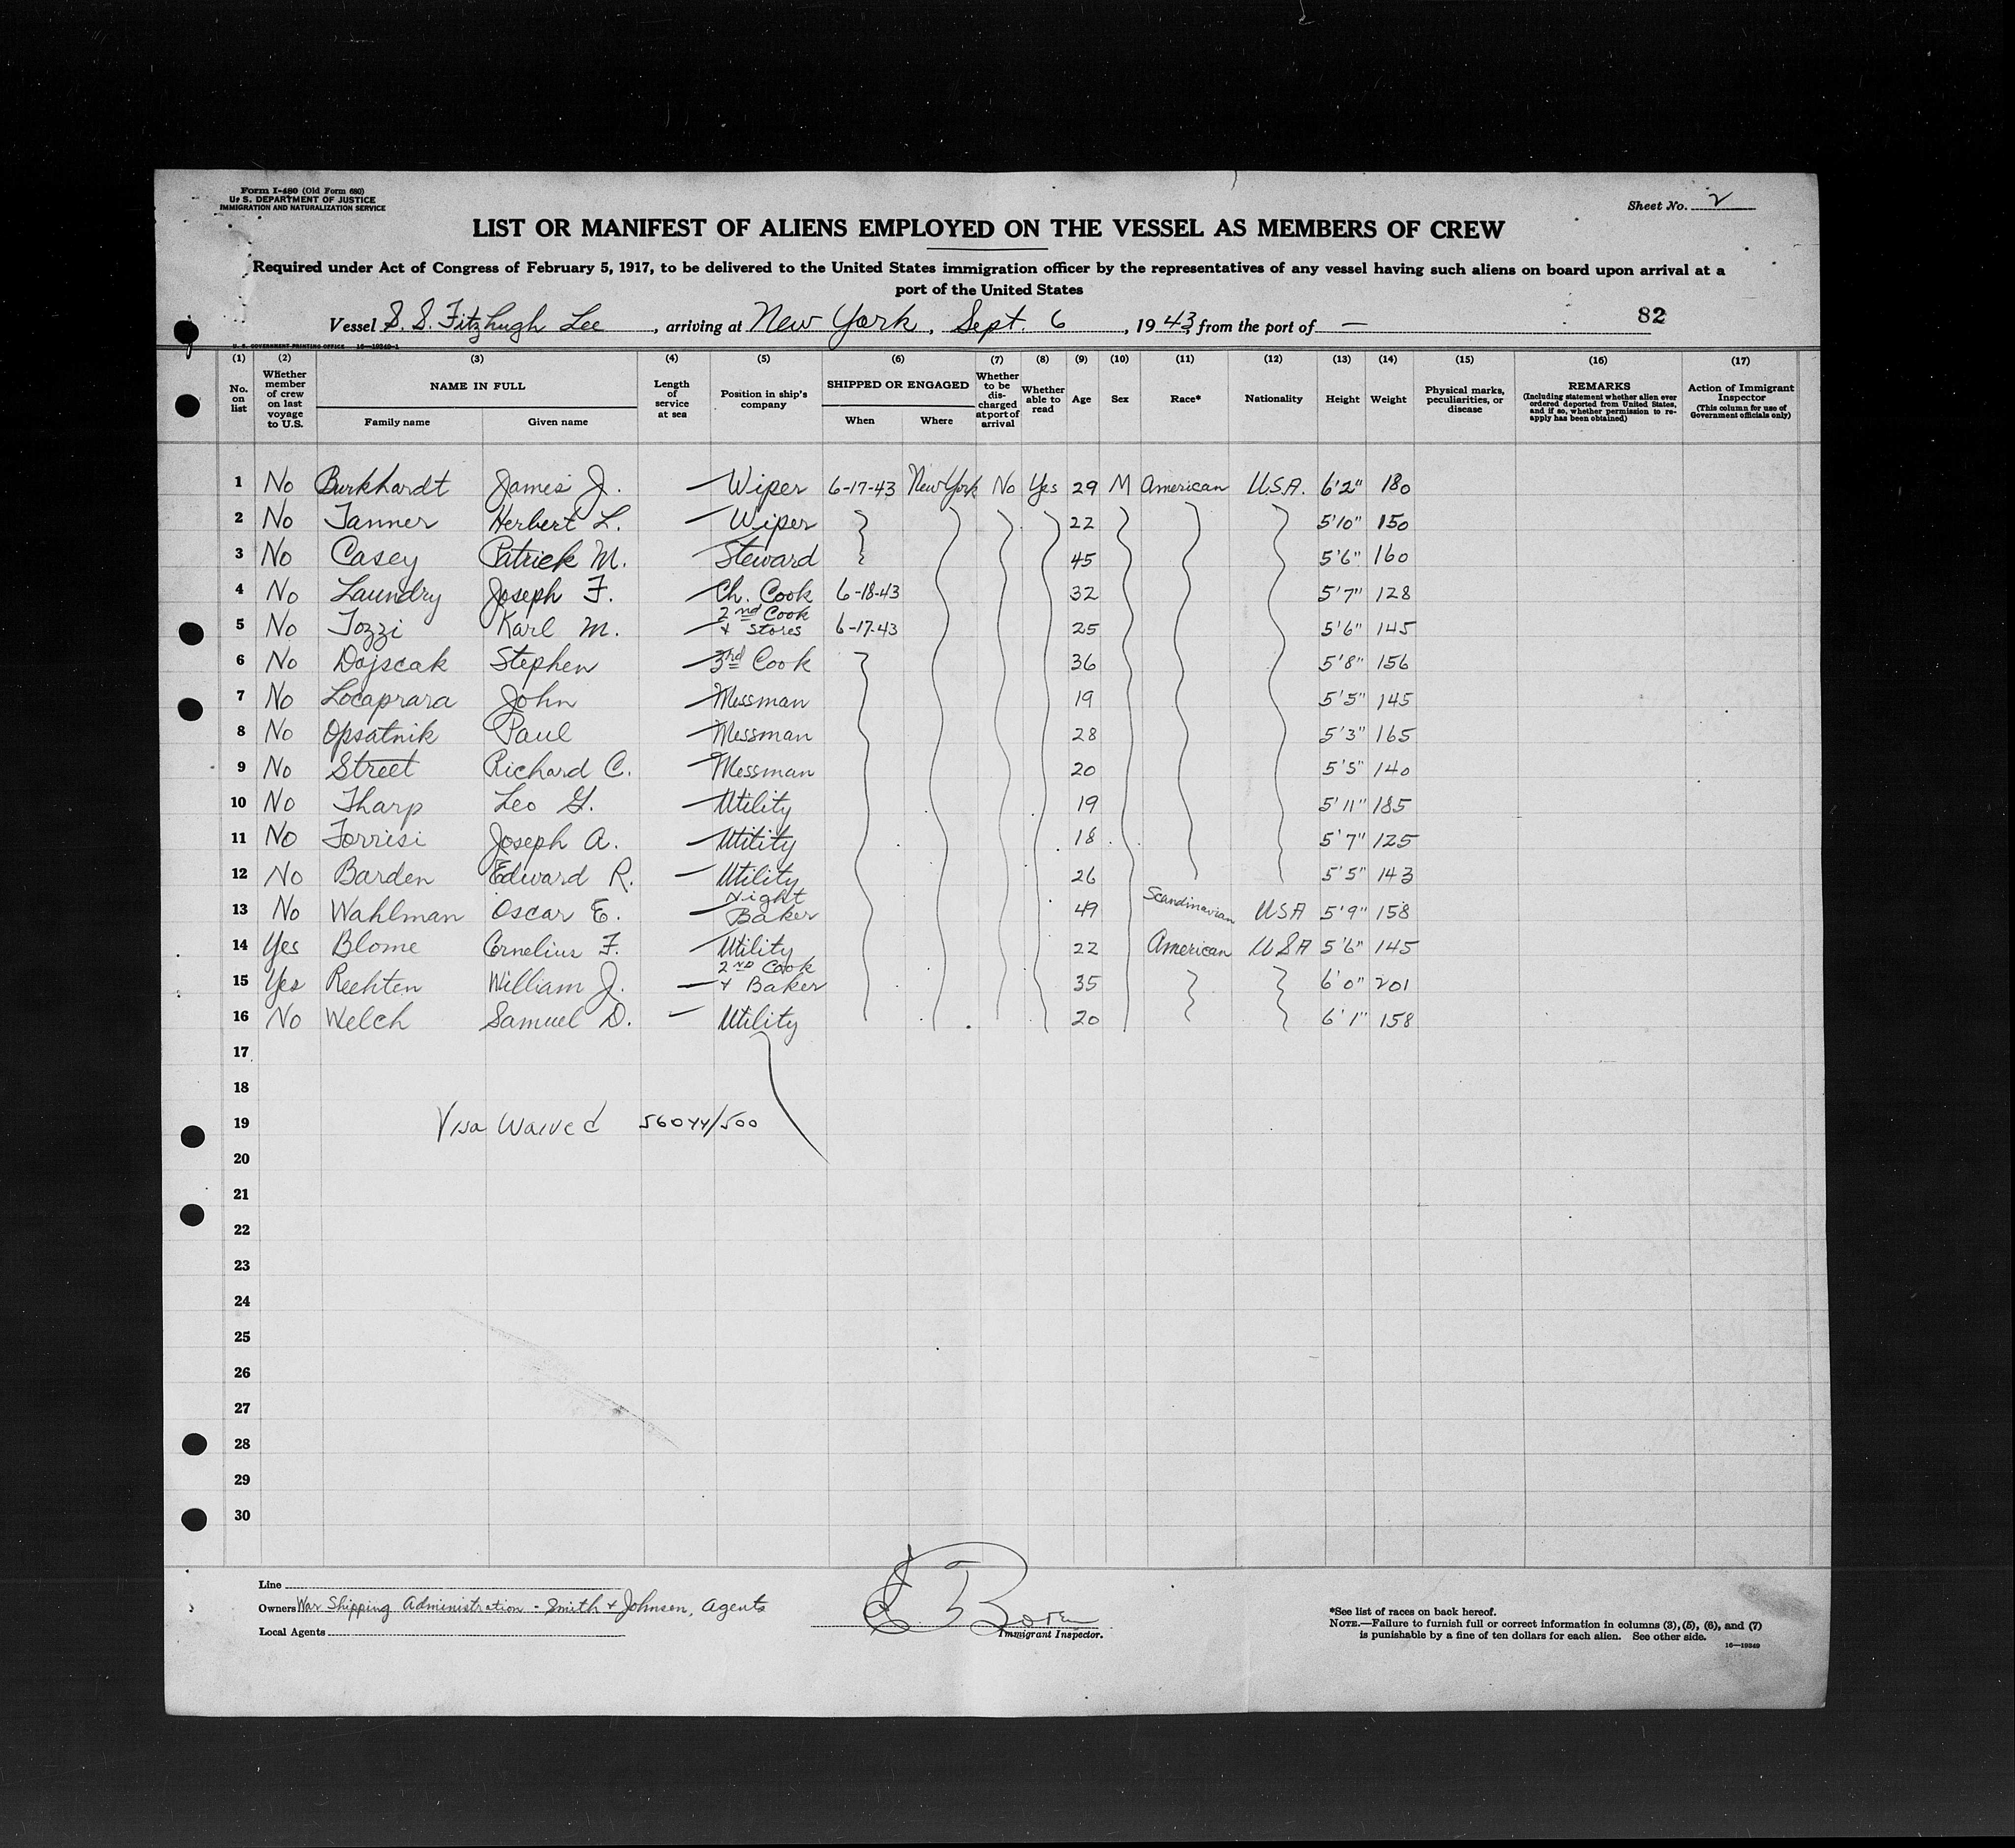 Form I-480 (Old Form 680)
U. S. DEPARTMENT OF JUSTICE
IMMIGRATION AND NATURALIZATION SERVICE
Sheet No. 2
LIST OR MANIFEST OF ALIENS EMPLOYED ON THE VESSEL AS MEMBERS OF CREW
Required under Act of Congress of February 5, 1917, to be delivered to the United States immigration officer by the representatives of any vessel having such aliens on board upon arrival at a
port of the United States
Vessel S. S. Fitzhugh Lee, arriving at New York, Sept. 6, 1943 from the port of —
82
U. S. GOVERNMENT PRINTING OFFICE 16—19240-1
(1) (2) (3) (4) (5) (6) (7) (8) (9) (10) (11) (12) (13) (14) (15) (16) (17)
No. on list
Whether member of crew on last voyage to U.S.
NAME IN FULL
Family name
Given name
Length of service at sea
Position in ship's company
SHIPPED OR ENGAGED
When
Where
Whether to be discharged at port of arrival
Whether able to read
Age
Sex
Race*
Nationality
Height
Weight
Physical marks, peculiarities, or disease
REMARKS
(Including statement whether alien ever ordered deported from United States, and if so, whether permission to re-apply has been obtained)
Action of Immigrant Inspector
(This column for use of Government officials only)
1 No Burkhardt James J. — Wiper 6-17-43 New York No Yes 29 M American U.S.A. 6'2" 180
2 No Tanner Herbert L. — Wiper 22 5'10" 150
3 No Casey Patrick M. — Steward 45 5'6" 160
4 No Laundry Joseph F. — Ch. Cook 6-18-43 32 5'7" 128
5 No Tozzi Karl M. — 2nd Cook + Stores 6-17-43 25 5'6" 145
6 No Dojscak Stephen — 3rd Cook 36 5'8" 156
7 No Locaprara John — Messman 19 5'5" 145
8 No Opsatnik Paul — Messman 28 5'3" 165
9 No Street Richard C. — Messman 20 5'5" 140
10 No Tharp Leo G. — Utility 19 5'11" 185
11 No Torrisi Joseph A. — Utility 18 5'7" 125
12 No Barden Edward R. — Utility 26 5'5" 143
13 No Wahlman Oscar E. — Night Baker 49 Scandinavian USA 5'9" 158
14 Yes Blome Cornelius F. — Utility 22 American USA 5'6" 145
15 Yes Rechten William J. — 2ND Cook + Baker 35 6'0" 201
16 No Welch Samuel D. — Utility 20 6'1" 158
17
18
19 Visa Waived 56044/500
20
21
22
23
24
25
26
27
28
29
30
Line
Owners War Shipping Administration - Smith + Johnson, Agents
Local Agents
Immigrant Inspector.
*See list of races on back hereof.
NOTE.—Failure to furnish full or correct information in columns (3), (5), (6), and (7)
is punishable by a fine of ten dollars for each alien. See other side.
16—19240